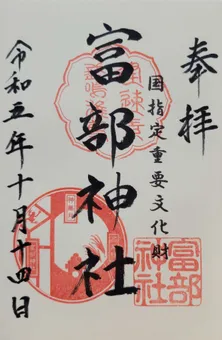 奉拝
国指定重要文化財
富部神社
富部
神社
令和五年十月十四日